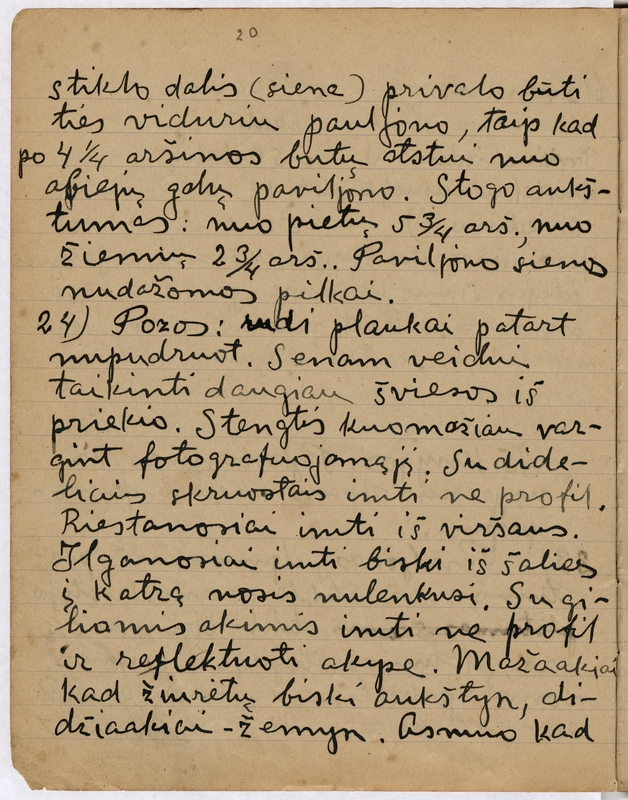 20
stiklo dalis (siena) privalo būti
ties viduriu paviljono, taip kad
po 4 1/4 aršinos butų atstui nuo
abiejų galų paviljono. Stogo aukš-
tumas: nuo pietų 5 3/4 arš., nuo
žiemių 2 3/4 arš.. Paviljono sienos
nudažomos pilkai.
24) Pozos: rudi plaukai patart
nupudruot. Senam veidui
taikinti daugiau šviesos iš
priekio. Stengtis kuomažiau var-
gint fotografuojamąjį. Su dide-
liais skruostais imti ne profil.
Riestanosiai imti iš viršaus.
Ilganosiai imti biski iš šalies
į katrą nosis nulenkusi. Su gi-
liamis akimis imti ne profil
ir reflektuoti akyse. Mažaakiai
kad žiurėtų biski aukštyn, di-
džiaakiai - žemyn. Asmuo kad